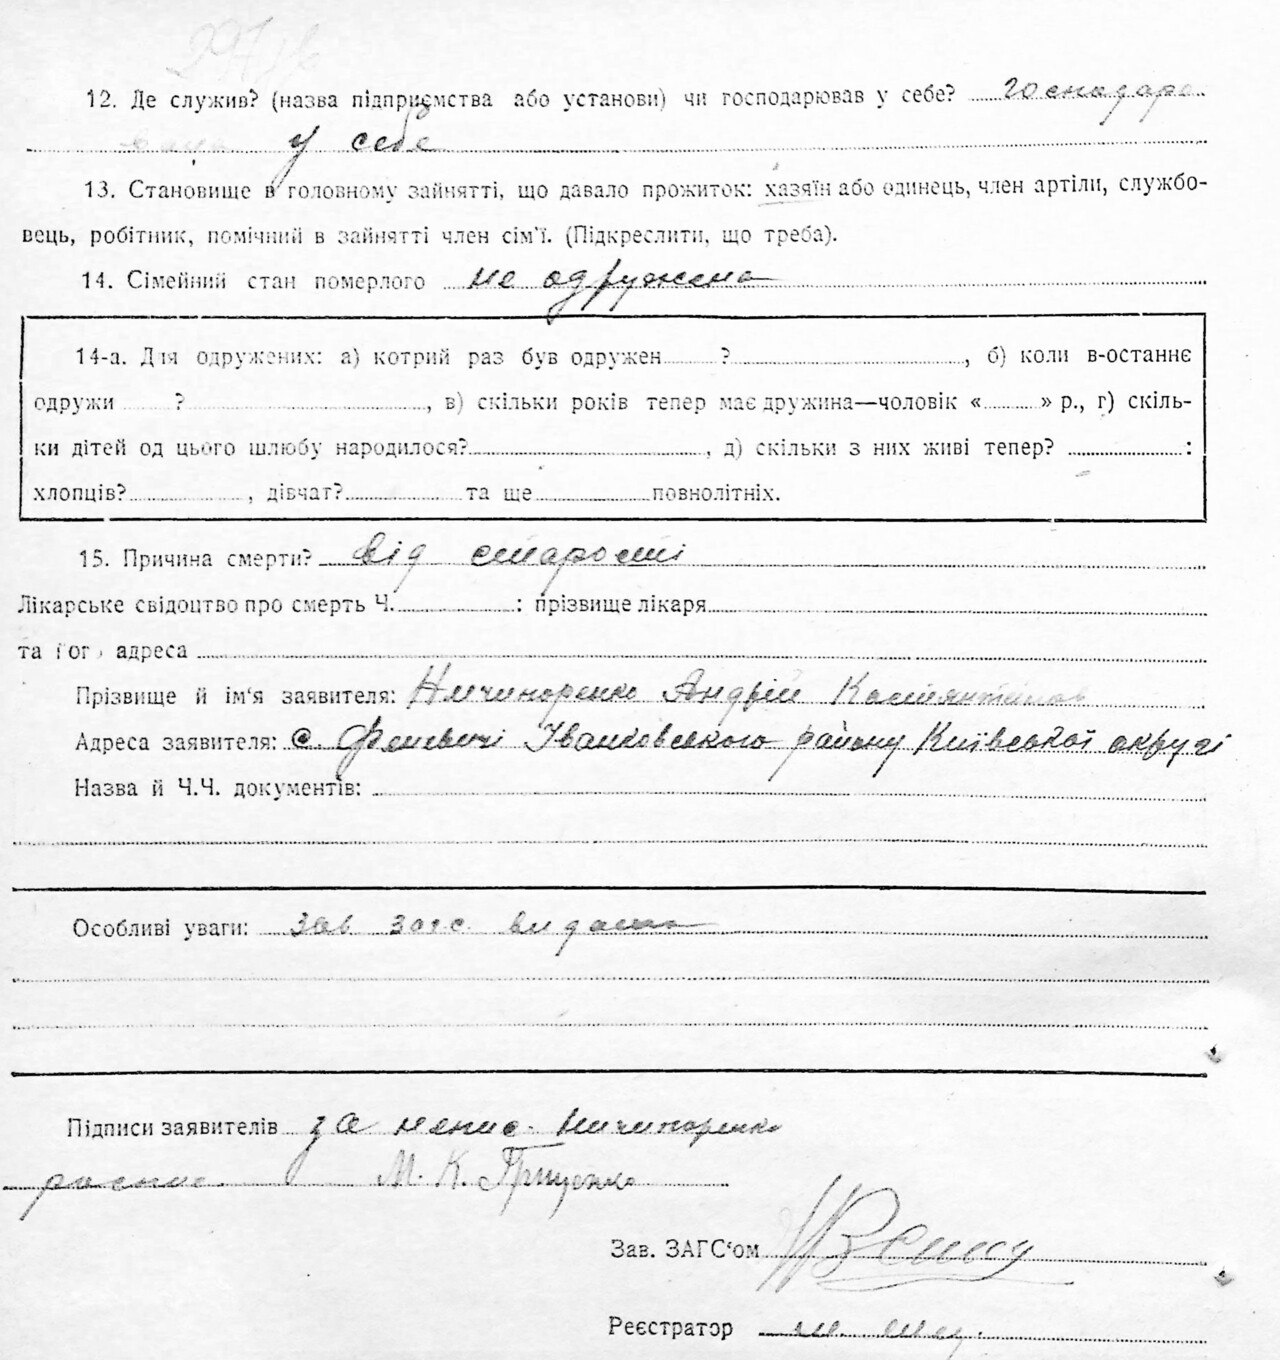 12. Де служив? (назва підприємства або установи) чи господарював у себе? господарю
вала у себе
13. Становище в головному зайнятті, що давало прожиток: хазяїн або одинець, член артіли, службо-
вець, робітник, помічний в зайнятті член сім'ї. (Підкреслити, що треба).
14. Сімейний стан померлого не одружена
14-а. Для одружених: а) котрий раз був одружен ? , б) коли в-останнє
одружи ? , в) скільки років тепер має дружина—чоловік « » р., г) скіль-
ки дітей од цього шлюбу народилося? , д) скільки з них живі тепер? :
хлопців? , дівчат? та ще повнолітніх.
15. Причина смерти? від старости
Лікарське свідоцтво про смерть Ч. : прізвище лікаря
та його адреса
Прізвище й ім'я заявителя: Ничипоренко Андрій
Адреса заявителя: с. Феневичі Іванковського району Київської округи
Назва й Ч.Ч. документів:
Особливі уваги: зав загс видана
Підписи заявителів за непис. Ничипоренко
роспис. М. К. Гриценко
Зав. ЗАГС'ом
Реєстратор